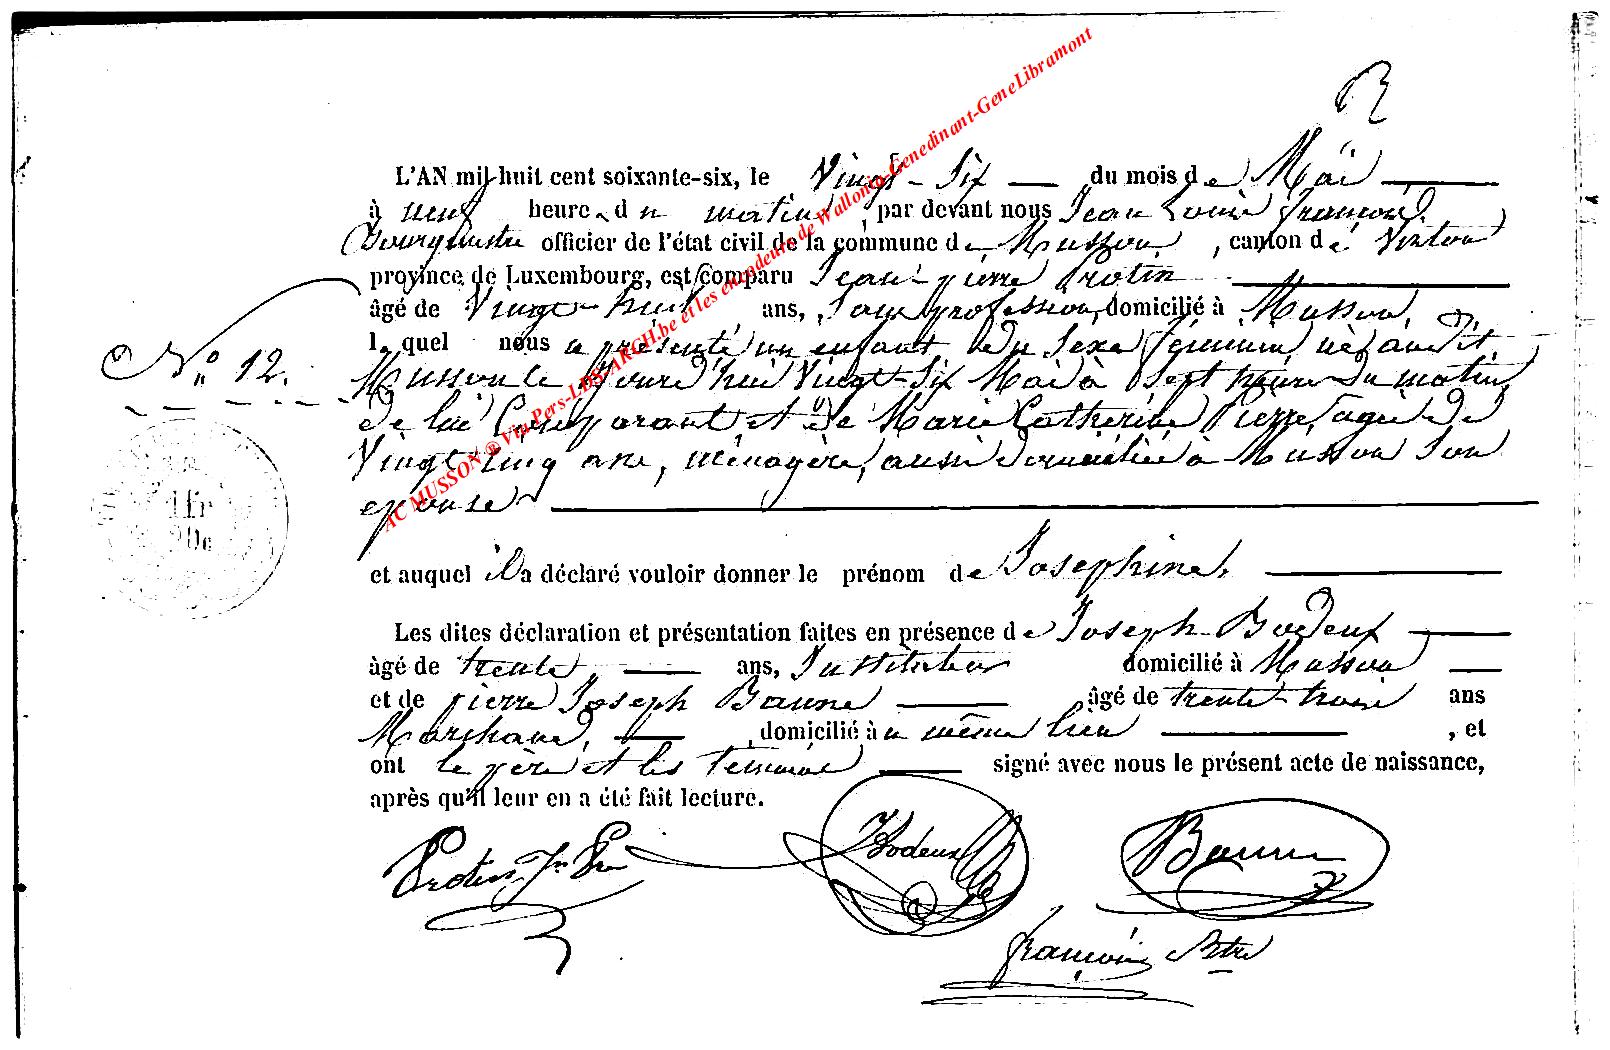 R
L'AN mil huit cent soixante-six, le Vingt-Six du mois de Mai
à neuf heures du matin, par devant nous Jean Louis François,
Bourgmestre officier de l'état civil de la commune de Musson, canton de Virton
province de Luxembourg, est comparu Jean-pierre Protin
âgé de Vingt-huit ans, Sans profession, domicilié à Musson,
lequel nous a présenté un enfant du Sexe féminin, né audit
N° 12.
Musson le jourd'hui Vingt-Six Mai à Sept heures du matin,
de lui Comparant et de Marie Catherine Pierre, agée de
Vingt-cinq ans, ménagère, aussi domiciliée à Musson Son
épouse
1 fr
90c
et auquel il a déclaré vouloir donner le prénom de Josephine.
Les dites déclaration et présentation faites en présence de Joseph Bodeux
âgé de trente ans, Instituteur domicilié à Musson
et de pierre Joseph Baune âgé de trente-trois ans
Marchand, domicilié au même lieu, et
ont le père et les témoins signé avec nous le présent acte de naissance,
après qu'il leur en a été fait lecture.
Protin Jn Pre JBodeux Baune
François Btre
AC MUSSON ® Via Pers-LDS-ARCH.be et les encodeurs de Wallonia-Genedinant-GeneLibramont